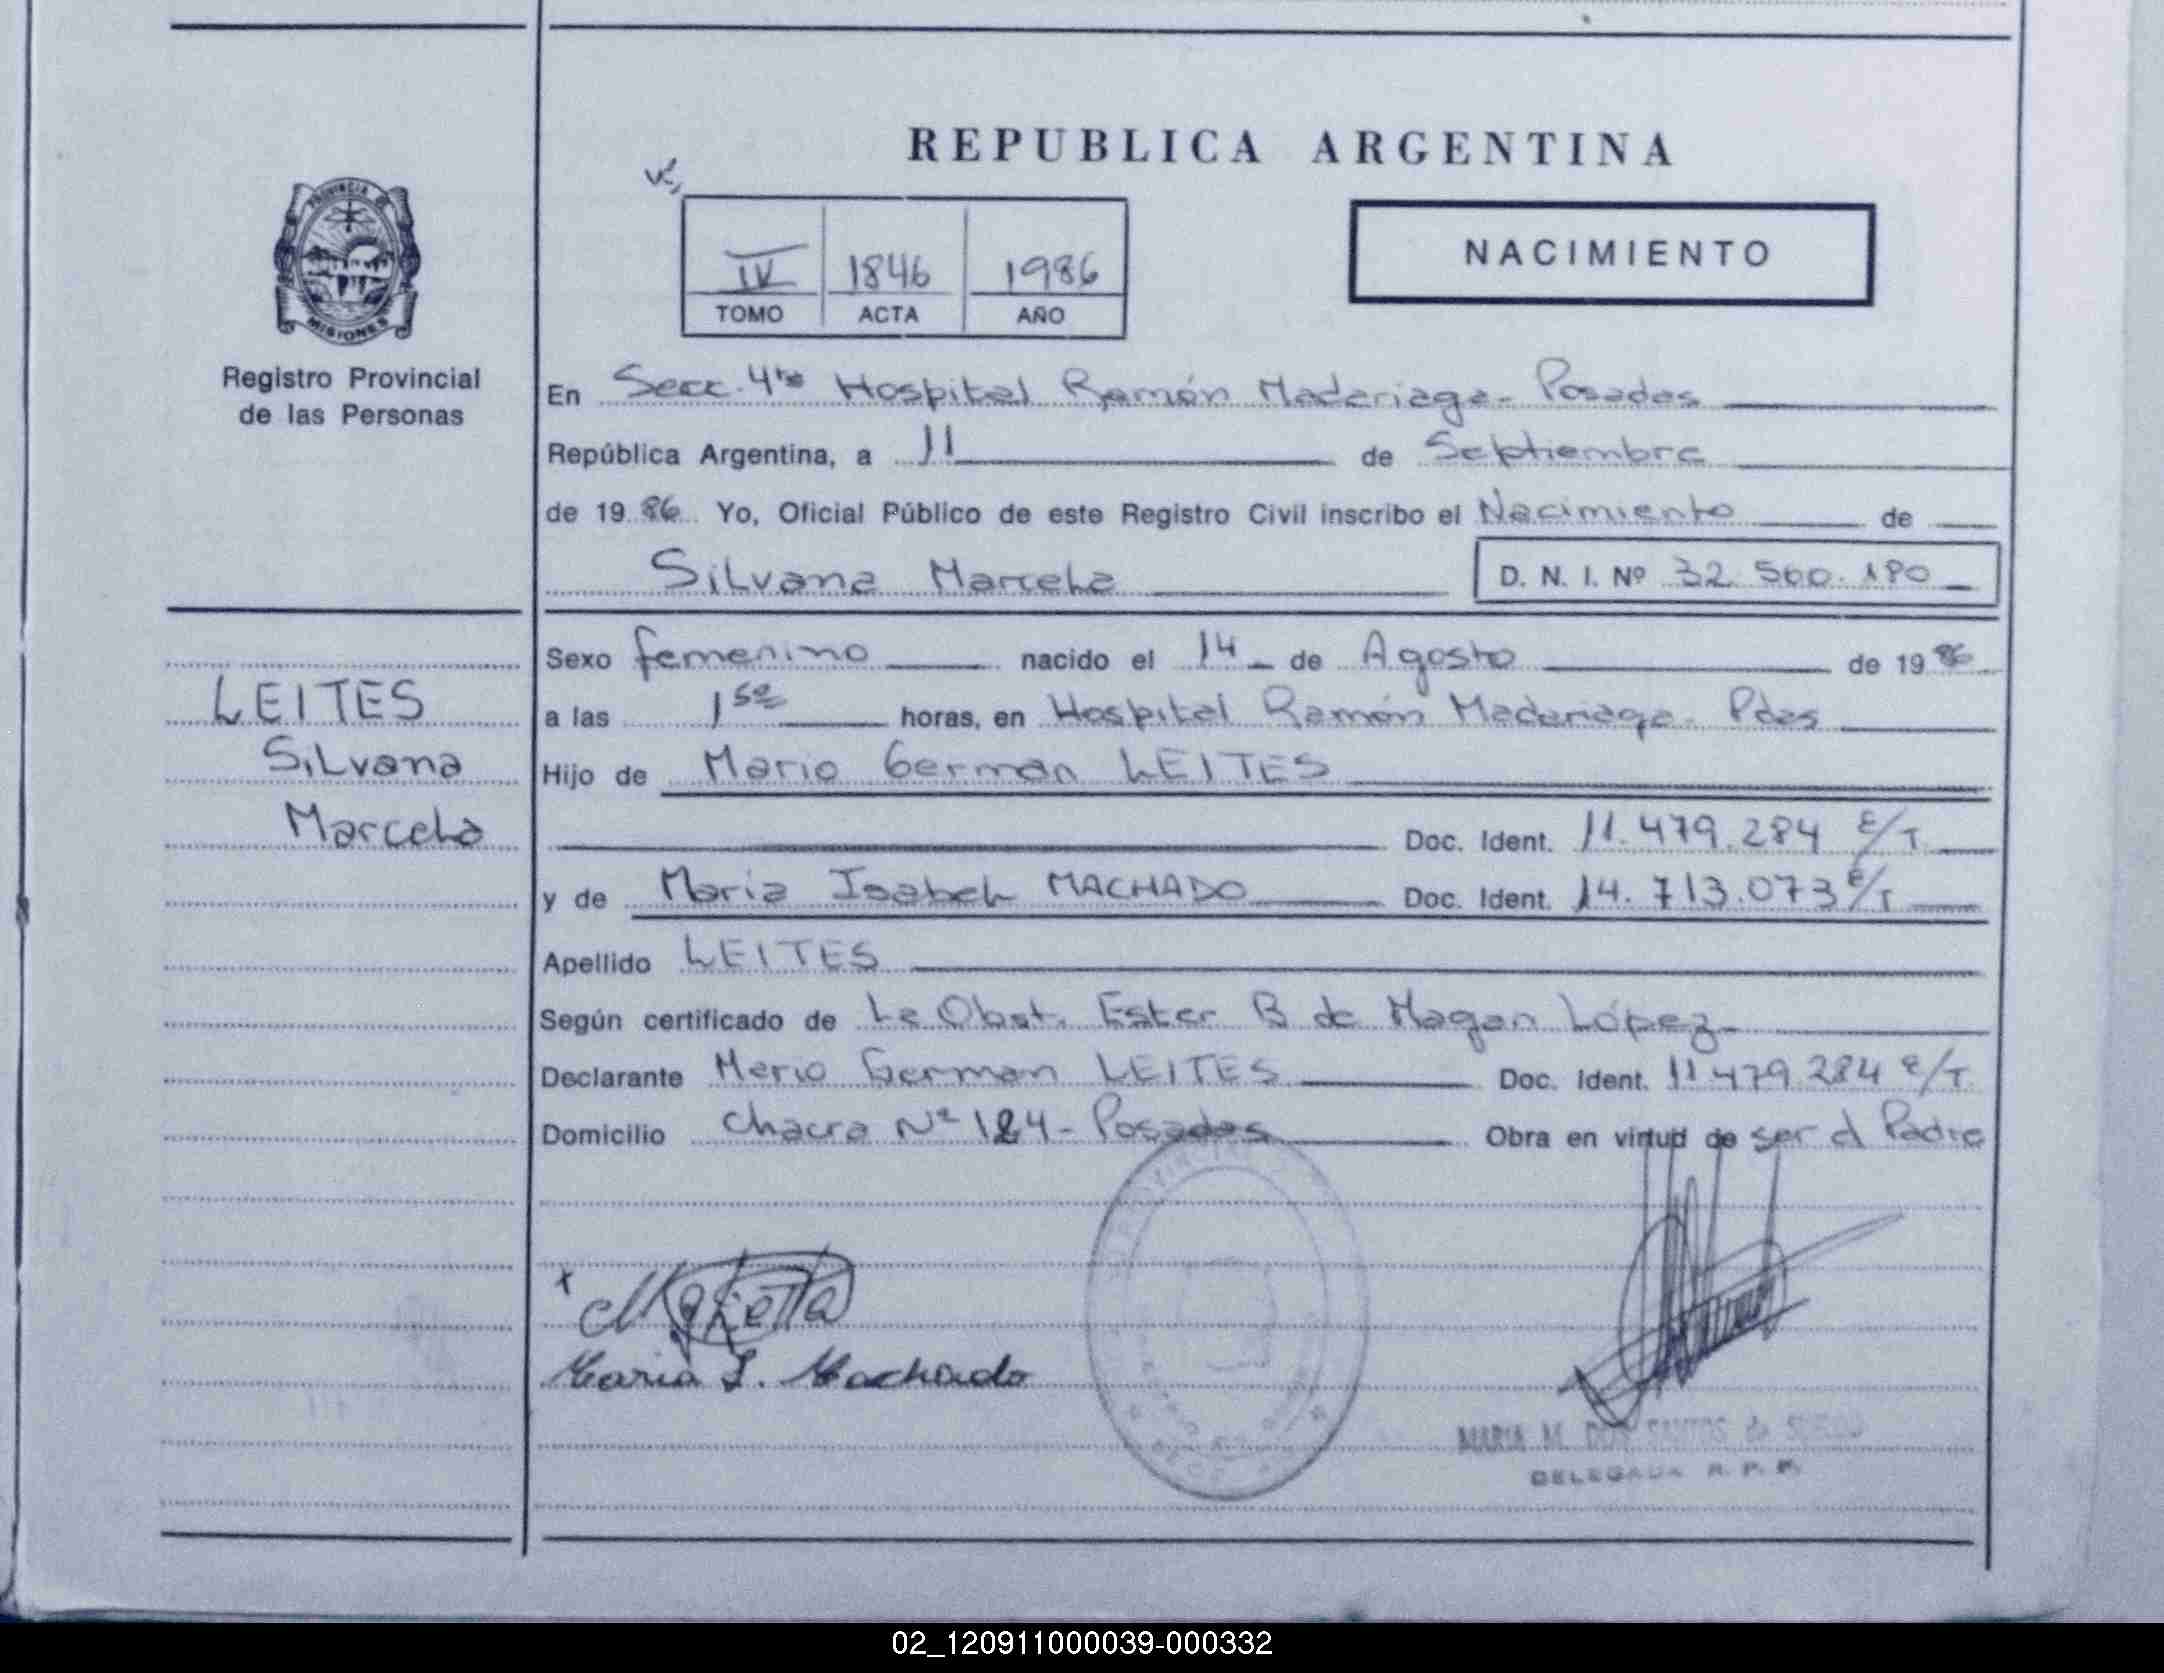 REPUBLICA ARGENTINA
IV 1846 1986
TOMO ACTA AÑO
NACIMIENTO
PROVINCIA DE
MISIONES
Registro Provincial
de las Personas
En Secc. 4ta Hospital Ramón Madariaga - Posadas
República Argentina, a 11 de Septiembre
de 1986 Yo, Oficial Público de este Registro Civil inscribo el Nacimiento de
Silvana Marcela D. N. I. Nº 32.560.180
LEITES
Silvana
Marcela
Sexo femenino nacido el 14 de Agosto de 1986
a las 1 50 horas, en Hospital Ramón Madariaga - Pdas
Hijo de Mario German LEITES
Doc. Ident. 11.479.284 E/T
y de Maria Isabel MACHADO Doc. Ident. 14.713.073 E/T
Apellido LEITES
Según certificado de La Obst. Ester B de Magan López
Declarante Mario German LEITES Doc. Ident. 11.479.284 E/T
Domicilio Chacra Nº 124 - Posadas Obra en virtud de ser el Padre
Maria I. Machado
MARIA M. DOS SANTOS de
DELEGADA R. P. P.
02_120911000039-000332